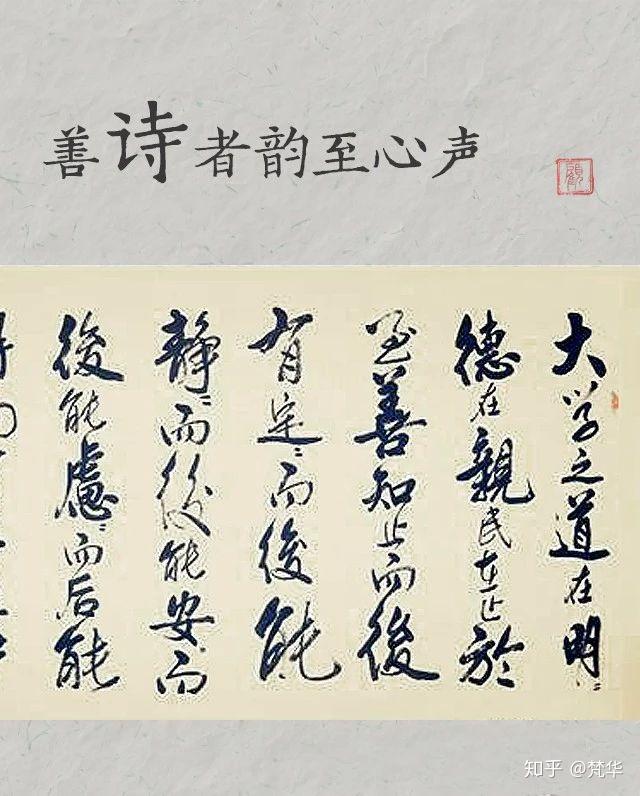 善诗者韵至心声
顧
大学之道在明〻
德在親民在止於
至善知止而後
有定〻而後能
静〻而後能安〻而
後能慮〻而后能
知乎 @梵华